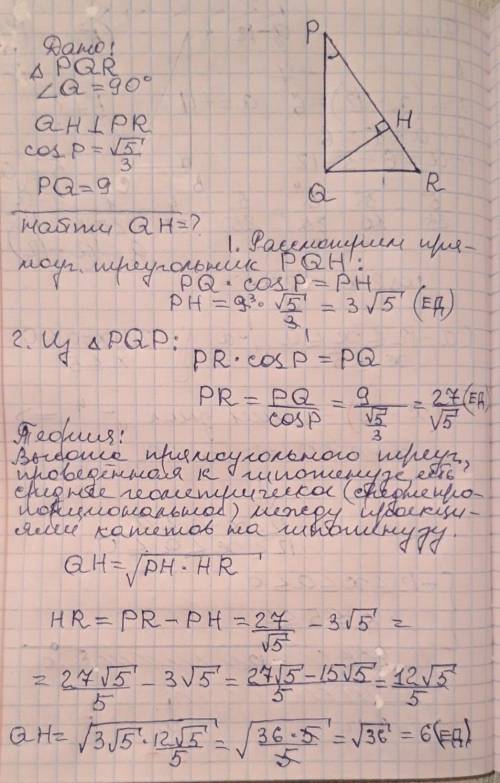 Дано:
△ PQR
∠Q = 90°
QH ⊥ PR
cos P = √5/3
PQ = 9
Найти QH = ?
P
H
Q
R
1. Рассмотрим пря-
моуг. треугольник PQH:
PQ · cos P = PH
PH = 9³ · √5/3₁ = 3√5 (ЕД)
2. Из △PQР:
PR · cos P = PQ
PR = PQ/cosP = 9/(√5/3) = 27/√5 (ЕД)
Теория:
Высота прямоугольного треуг.,
проведённая к гипотенузе, есть
среднее геометрическое (среднепро-
порциональное) между проекци-
ями катетов на гипотенузу.
QH = √(PH · HR)
HR = PR − PH = 27/√5 − 3√5 =
= 27√5/5 − 3√5 = (27√5 − 15√5)/5 = 12√5/5
QH = √(3√5 · 12√5/5) = √(36 · 5/5) = √36 = 6 (ЕД)